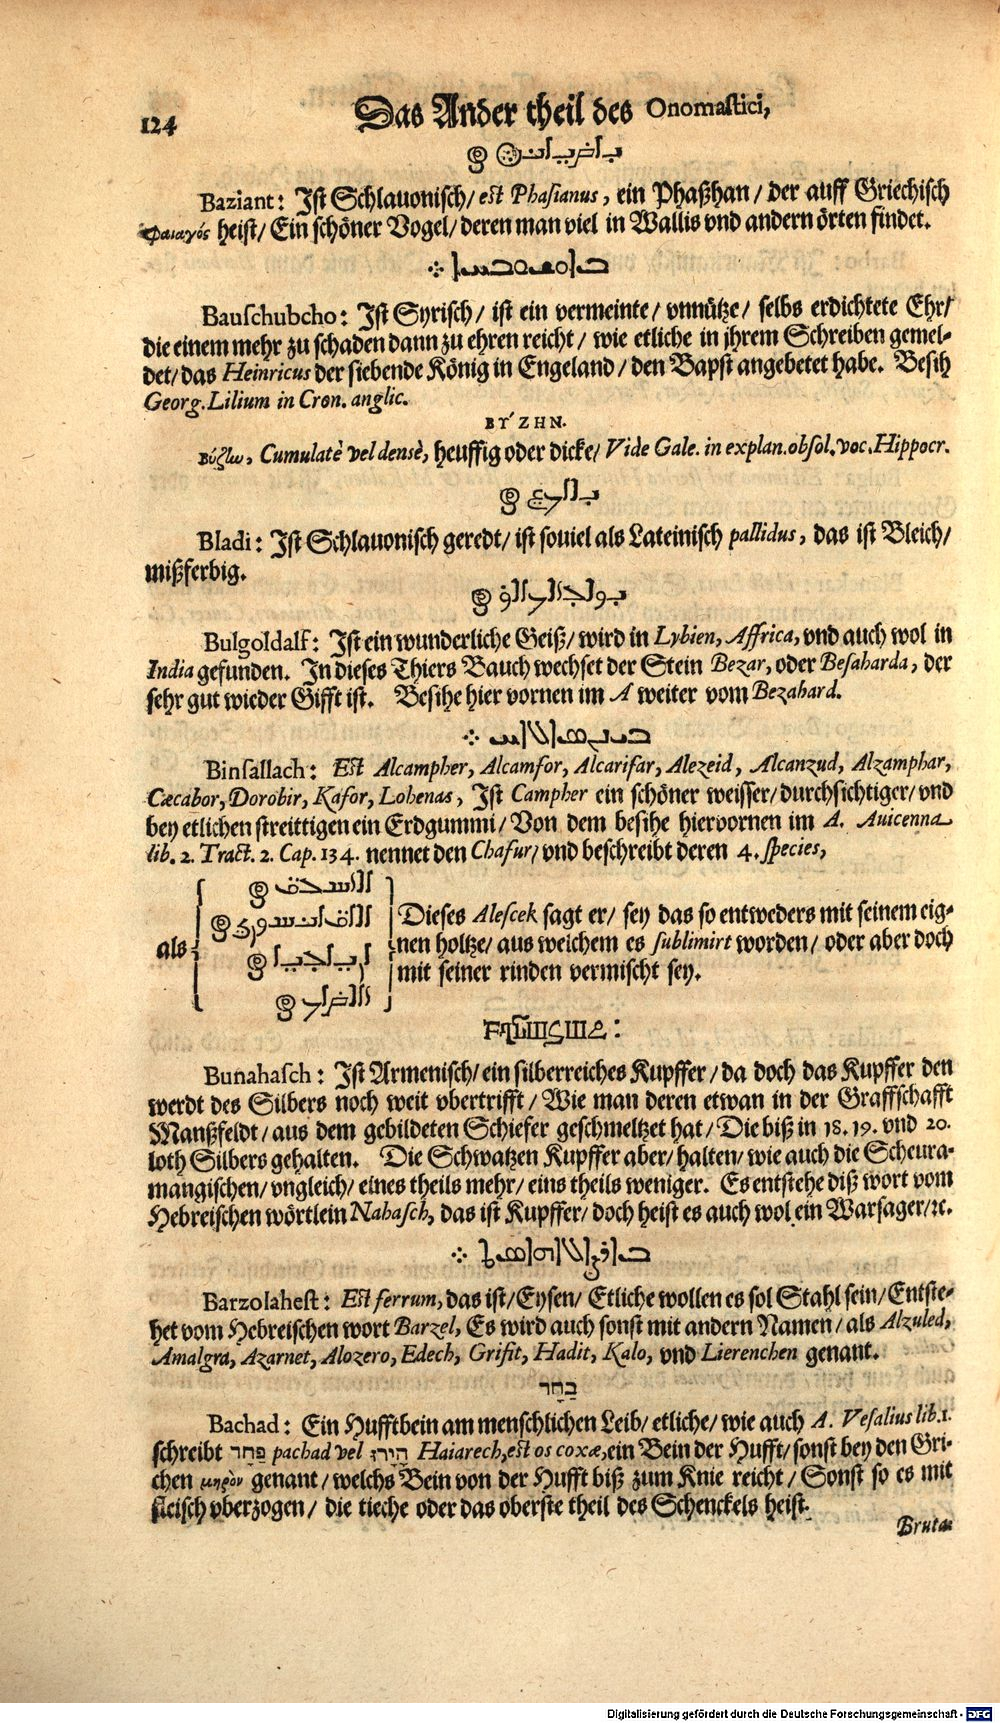 124
Das Ander theil des Onomastici,
Baziant: Ist Schlauonisch/ est Phasianus, ein Phaßhan/ der auff Griechisch
heist/ Ein schöner Vogel/ deren man viel in Wallis vnd andern örten findet.
Bauschubcho: Ist Syrisch/ ist ein vermeinte/ vnnütze/ selbs erdichtete Ehr/
die einem mehr zu schaden dann zu ehren reicht/ wie etliche in jhrem Schreiben gemel-
det/ das Heinricus der siebende König in Engeland/ den Bapst angebetet habe. Besih
Georg. Lilium in Cron. anglic.
ΒΎΖΗΝ.
βύζω, Cumulatè vel densè, heuffig oder dicke/ Vide Gale. in explan. obsol. voc. Hippocr.
Bladi: Ist Schlauonisch geredt/ ist souiel als Lateinisch pallidus, das ist Bleich/
mißferbig.
Bulgoldalf: Ist ein wunderliche Geiß/ wird in Lybien, Affrica, vnd auch wol in
India gefunden. In dieses Thiers Bauch wechset der Stein Bezar, oder Besaharda, der
sehr gut wieder Gifft ist. Besihe hier vornen im A weiter vom Bezahard.
Binsallach: Est Alcampher, Alcamfor, Alcarifar, Alezeid, Alcanzud, Alzamphar,
Cæcabor, Dorobir, Kafor, Lohenas, Ist Campher ein schöner weisser/ durchsichtiger/ vnd
bey etlichen streittigen ein Erdgummi/ Von dem besihe hiervornen im A. Auicenna
lib. 2. Tract. 2. Cap. 134. nennet den Chafur/ vnd beschreibt deren 4. species,
als
Dieses Alescek sagt er/ sey das so entweders mit seinem eig-
nen holtze/ aus welchem es sublimirt worden/ oder aber doch
mit seiner rinden vermischt sey.
Bunahasch: Ist Armenisch/ ein silberreiches Kupffer/ da doch das Kupffer den
werdt des Silbers noch weit vbertrifft/ Wie man deren etwan in der Graffschafft
Manßfeldt/ aus dem gebildeten Schiefer geschmeltzet hat/ Die biß in 18. 19. vnd 20.
loth Silbers gehalten. Die Schwatzen Kupffer aber/ halten/ wie auch die Scheura-
mangischen/ vngleich/ eines theils mehr/ eins theils weniger. Es entstehe diß wort vom
Hebreischen wörtlein Nahasch, das ist Kupffer/ doch heist es auch wol ein Warsager/ ꝛc.
Barzolahest: Est ferrum, das ist/ Eysen/ Etliche wollen es sol Stahl sein/ Entste-
het vom Hebreischen wort Barzel, Es wird auch sonst mit andern Namen/ als Alzuled,
Amalgra, Azarnet, Alozero, Edech, Grifit, Hadit, Kalo, vnd Lierenchen genant.
בַחַד
Bachad: Ein Hufftbein am menschlichen Leib/ etliche/ wie auch A. Vesalius lib. 1.
schreibt פַחַד pachad vel Haiarech, est os coxæ, ein Bein der Hufft/ sonst bey den Gri-
chen μηρὸν genant/ welchs Bein von der Hufft biß zum Knie reicht/ Sonst so es mit
fleisch vberzogen/ die tieche oder das oberste theil des Schenckels heist.
Bruta
Digitalisierung gefördert durch die Deutsche Forschungsgemeinschaft - DFG